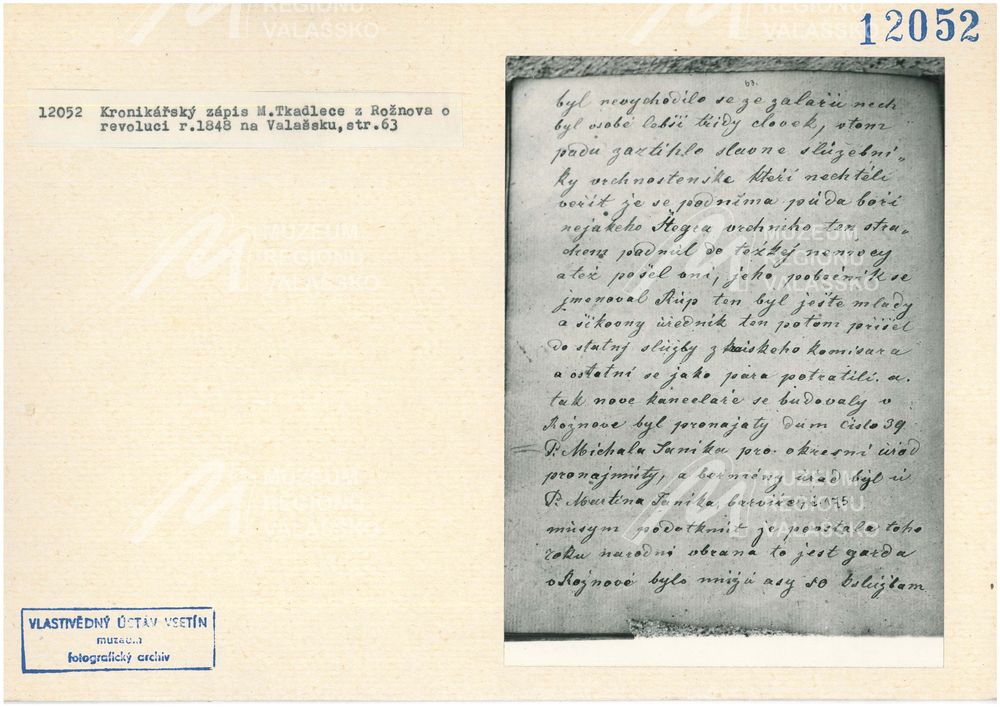 12052
12052 Kronikářský zápis M.Tkadlece z Rožnova o
revoluci r.1848 na Valašsku,str.63
63.
byl nevychodilo se ze zalařu nech
byl osobě lebši třidy človek, vtom
padu zaztihlo slavne služebni„
ky vrchnostenske kteři nechtěli
věřit je se pod nima půda boři
nejakeho Štogra vrchniho ten stra„
chem padnul do težkej nemocy
a též pošel oni, jeho pobočnik se
jmenoval Rup ten byl ješte mlady
a šikovny uřednik ten potom přišel
do statnj služby z kraiskeho komisara
a ostatni se jako para potratili. a.
tak nove kancelaře se budovaly v
Rožnove byl pronajaty dum čislo 39
P. Michala Janika pro okresni uřad
pronajmuty, a berničny uřad byl u
P. Martina Janika barviče, č 175
musym podotknut je povstala toho
roku narodni obrana to jest garda
v Rožnově bylo mužu asy 80 k službam
VLASTIVĚDNÝ ÚSTAV VSETÍN
muzeum
fotografický archiv
MUZEUM
REGIONU
VALAŠSKO